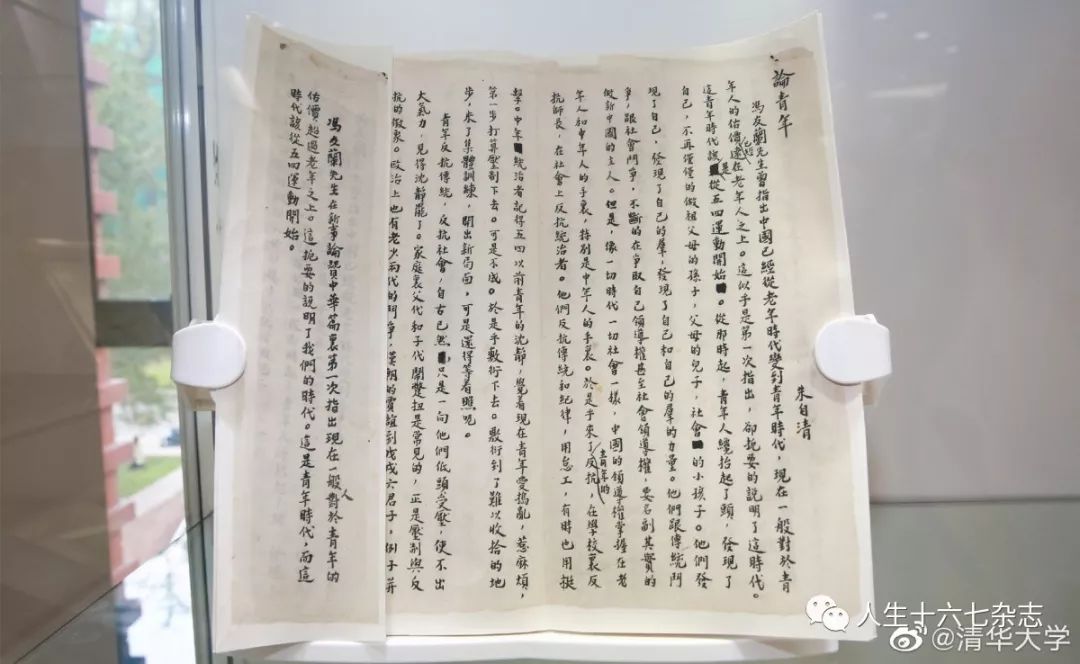 論青年
朱自清
馮友蘭先生曾指出中國已經從老年時代變到青年時代,現在一般對於青
年人的估價已經遠在老年人之上。這似乎是第一次指出,卻扼要的說明了這時代。
這青年時代該是從五四運動開始。從那時起,青年人纔抬起了頭,發現了
自己,不再僅僅的做祖父母的孫子,父母的兒子,社會的小孩子。他們發
現了自己,發現了自己的羣,發現了自己和自己的羣的力量。他們跟傳統鬥
爭,跟社會鬥爭,不斷的在爭取自己領導權甚至社會領導權,要名副其實的
做新中國的主人。但是,像一切時代一切社會一樣,中國的領導權掌握在老
年人和中年人的手裏,特別是中年人的手裏。於是乎來了青年的反抗,在學校裏反
抗師長,在社會上反抗統治者。他們反抗傳統和紀律,用怠工,有時也用挺
擊。中年統治者記得五四以前青年的沈靜,覺着現在青年愛搗亂,惹麻煩,
第一步打算壓制下去。可是不成。於是乎敷衍下去。敷衍到了難以收拾的地
步,來了集體訓練,開出新局面,可是還得等着瞧呢。
青年反抗傳統,反抗社會,自古已然,只是一向他們低頭受壓,使不出
大氣力,見得沈靜罷了。家庭裏父代和子代鬧彆扭是常見的,正是壓制與反
抗的徵象。政治上也有老少兩代的鬥爭,漢朝的賈誼到戊戌六君子,例子並
馮友蘭先生在新事論贊中華篇裏第一次指出現在一般人對於青年的
估價超過老年之上。這扼要的說明了我們的時代。這是青年時代,而這
時代該從五四運動開始。
人生十六七杂志
@清华大学